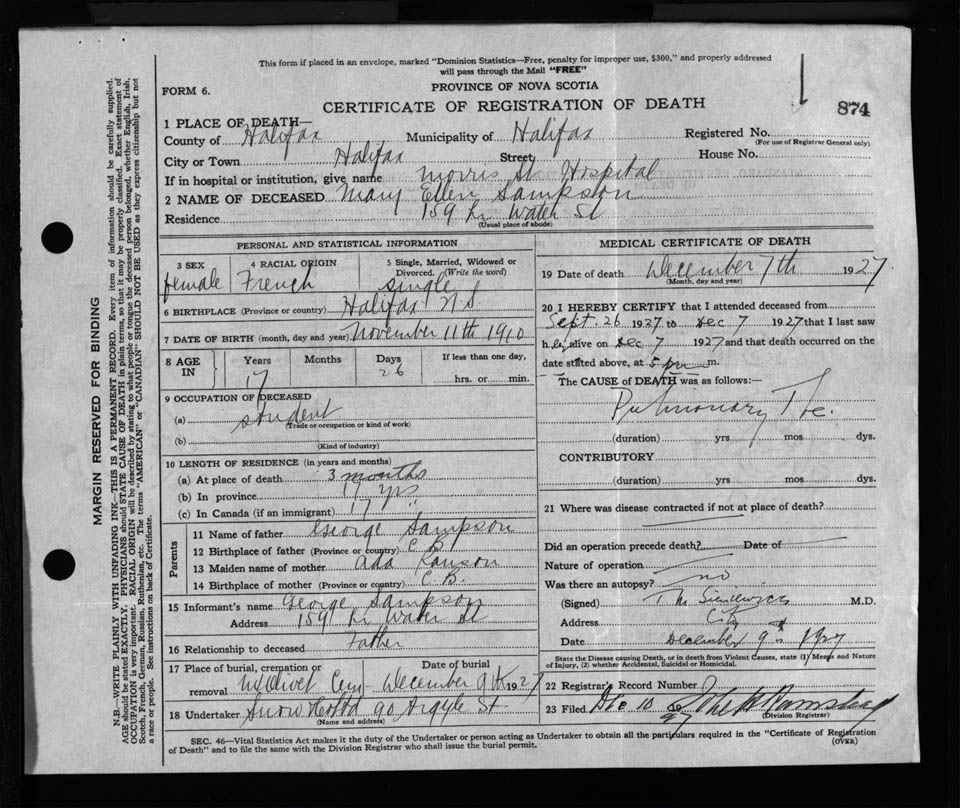 This form if placed in an envelope, marked "Dominion Statistics—Free, penalty for improper use, $300," and properly addressed
will pass through the Mail "FREE"
FORM 6.
PROVINCE OF NOVA SCOTIA
CERTIFICATE OF REGISTRATION OF DEATH
874
1 PLACE OF DEATH—
County of Halifax Municipality of Halifax Registered No.
(For use of Registrar General only)
City or Town Halifax Street House No.
If in hospital or institution, give name Morris St Hospital
2 NAME OF DECEASED Mary Ellen Sampson
Residence 159 Water St
(Usual place of abode)
PERSONAL AND STATISTICAL INFORMATION
3 SEX 4 RACIAL ORIGIN 5 Single, Married, Widowed or
Divorced. (Write the word)
female French single
6 BIRTHPLACE (Province or country) Halifax N.S.
7 DATE OF BIRTH (month, day and year) November 11th 1910
8 AGE IN Years Months Days If less than one day,
17 26 hrs. or min.
9 OCCUPATION OF DECEASED
(a) student
(Trade or occupation or kind of work)
(b)
(Kind of industry)
10 LENGTH OF RESIDENCE (in years and months)
(a) At place of death 3 months
(b) In province 17 yrs
(c) In Canada (if an immigrant) 17 "
Parents
11 Name of father George Sampson
12 Birthplace of father (Province or country) C B
13 Maiden name of mother Ada
14 Birthplace of mother (Province or country) C.B.
15 Informant's name George Sampson
Address 159 Water St
16 Relationship to deceased Father
17 Place of burial, cremation or removal Date of burial
Mt Olivet Cem - December 9th 1927
18 Undertaker Snow & Co Ltd 90 Argyle St
(Name and address)
MEDICAL CERTIFICATE OF DEATH
19 Date of death December 7th 1927
(Month, day and year)
20 I HEREBY CERTIFY that I attended deceased from
Sept. 26 1927 to Dec 7 1927 that I last saw
her alive on Dec 7 1927 and that death occurred on the
date stated above, at 5 pm m.
The CAUSE of DEATH was as follows:—
Pulmonary Tbc.
(duration) yrs mos dys.
CONTRIBUTORY
(duration) yrs mos dys.
21 Where was disease contracted if not at place of death?
Did an operation precede death? Date of
Nature of operation
Was there an autopsy? no
(Signed) M.D.
Address City
Date December 9th 1927
State the Disease causing Death, or in death from Violent Causes, state (1) Means and Nature
of Injury, (2) whether Accidental, Suicidal or Homicidal.
22 Registrar's Record Number
23 Filed Dec 10 1927
(Division Registrar)
SEC. 46—Vital Statistics Act makes it the duty of the Undertaker or person acting as Undertaker to obtain all the particulars required in the "Certificate of Registration
of Death" and to file the same with the Division Registrar who shall issue the burial permit.
(OVER)
MARGIN RESERVED FOR BINDING
N.B.—WRITE PLAINLY WITH UNFADING INK—THIS IS A PERMANENT RECORD. Every item of information should be carefully supplied.
AGE should be stated EXACTLY. PHYSICIANS should STATE CAUSE OF DEATH in plain terms, so that it may be properly classified. Exact statement of
OCCUPATION is very important. RACIAL ORIGIN will be described by stating to what people or tongue the deceased person belonged, whether English, Irish,
Scotch, French, German, Russian, Ruthenian, etc. The terms "AMERICAN" or "CANADIAN" SHOULD NOT BE USED as they express citizenship but not
a race or people. See instructions on back of Certificate.